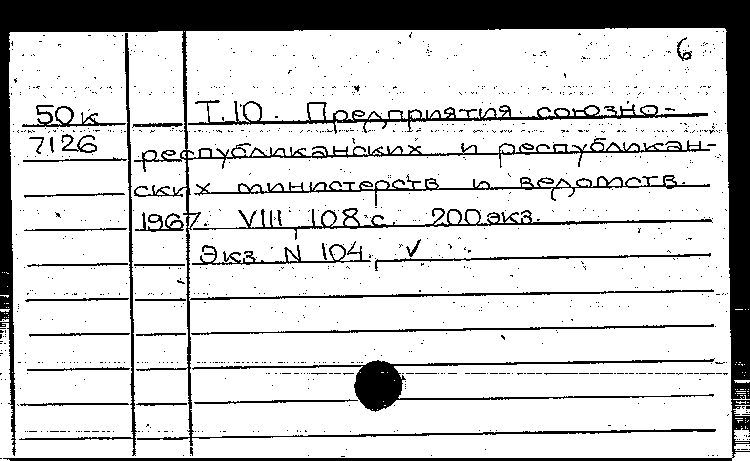 6
50к Т.10. Предприятия союзно-
7126 республиканских и республикан-
ских министерств и ведомств.
1967. VIII, 108 с. 200 экз.
Экз. N 104, V